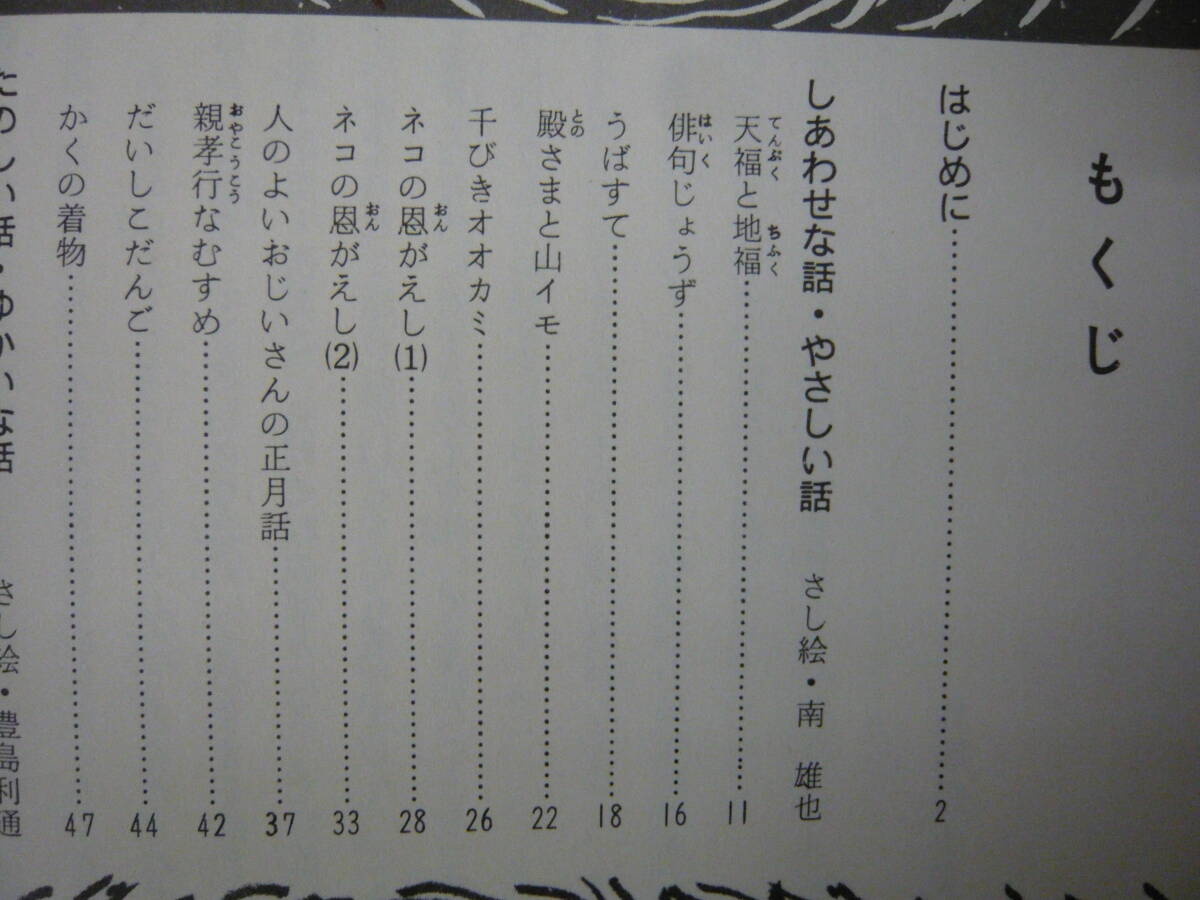 もくじ
はじめに……2
しあわせな話・やさしい話 さし絵・南 雄也
天福と地福……11
俳句じょうず……16
うばすて……18
殿さまと山イモ……22
千びきオオカミ……26
ネコの恩がえし(1)……28
ネコの恩がえし(2)……33
人のよいおじいさんの正月話……37
親孝行なむすめ……42
だいしこだんご……44
かくの着物……47
たのしい話・ゆかいな話 さし絵・豊島利通